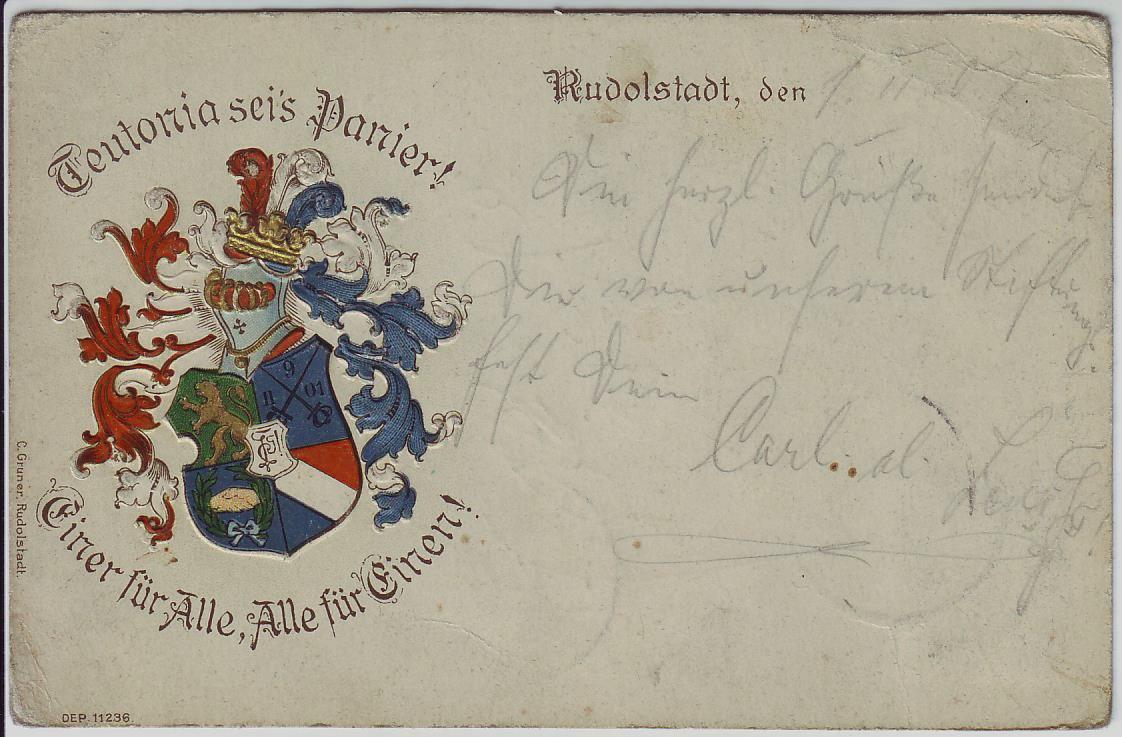 Teutonia sei's Panier!
Rudolstadt, den
Die herzl. Grüße sendet
Dir von unserem Stiftungs-
fest Dein
Carl. al.
9
11 01
Einer für Alle, Alle für Einen!
C. Gruner, Rudolstadt.
DEP. 11236.